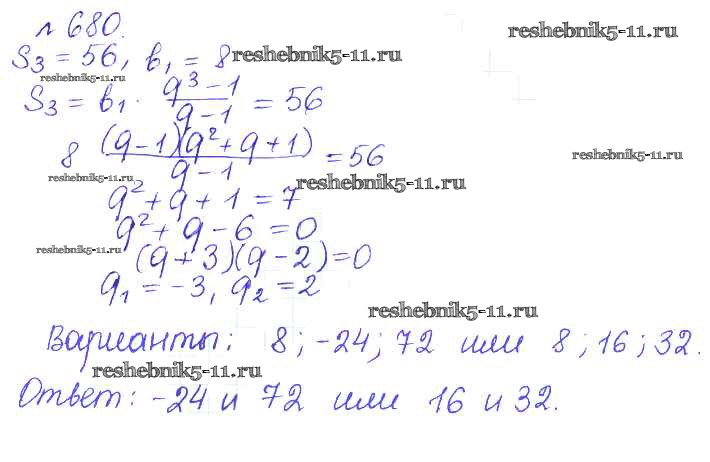 № 680.
reshebnik5-11.ru
S₃ = 56, b₁ = 8
reshebnik5-11.ru
reshebnik5-11.ru
S₃ = b₁ · (q³ − 1)/(q − 1) = 56
8 (q − 1)(q² + q + 1)/(q − 1) = 56
reshebnik5-11.ru
reshebnik5-11.ru
reshebnik5-11.ru
q² + q + 1 = 7
q² + q − 6 = 0
reshebnik5-11.ru
(q + 3)(q − 2) = 0
q₁ = −3, q₂ = 2
reshebnik5-11.ru
Варианты: 8; −24; 72 или 8; 16; 32.
reshebnik5-11.ru
Ответ: −24 и 72 или 16 и 32.